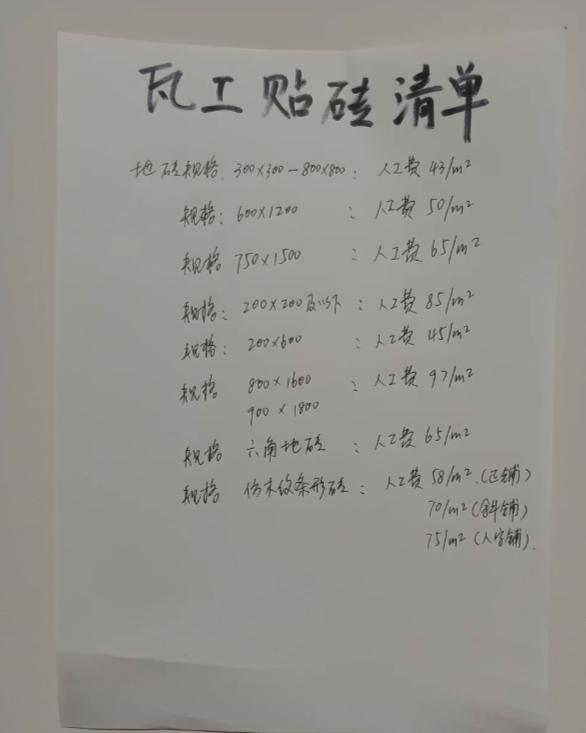 瓦工贴砖清单
地砖规格 300×300-800×800: 人工费 43/m²
规格: 600×1200 : 人工费 50/m²
规格 750×1500 : 人工费 65/m²
规格: 200×200及以下 : 人工费 85/m²
规格: 200×600 : 人工费 45/m²
规格 800×1600 : 人工费 97/m²
900×1800
规格 六角地砖 : 人工费 65/m²
规格 仿木纹条形砖 : 人工费 58/m² (正铺)
70/m² (斜铺)
75/m² (人字铺).